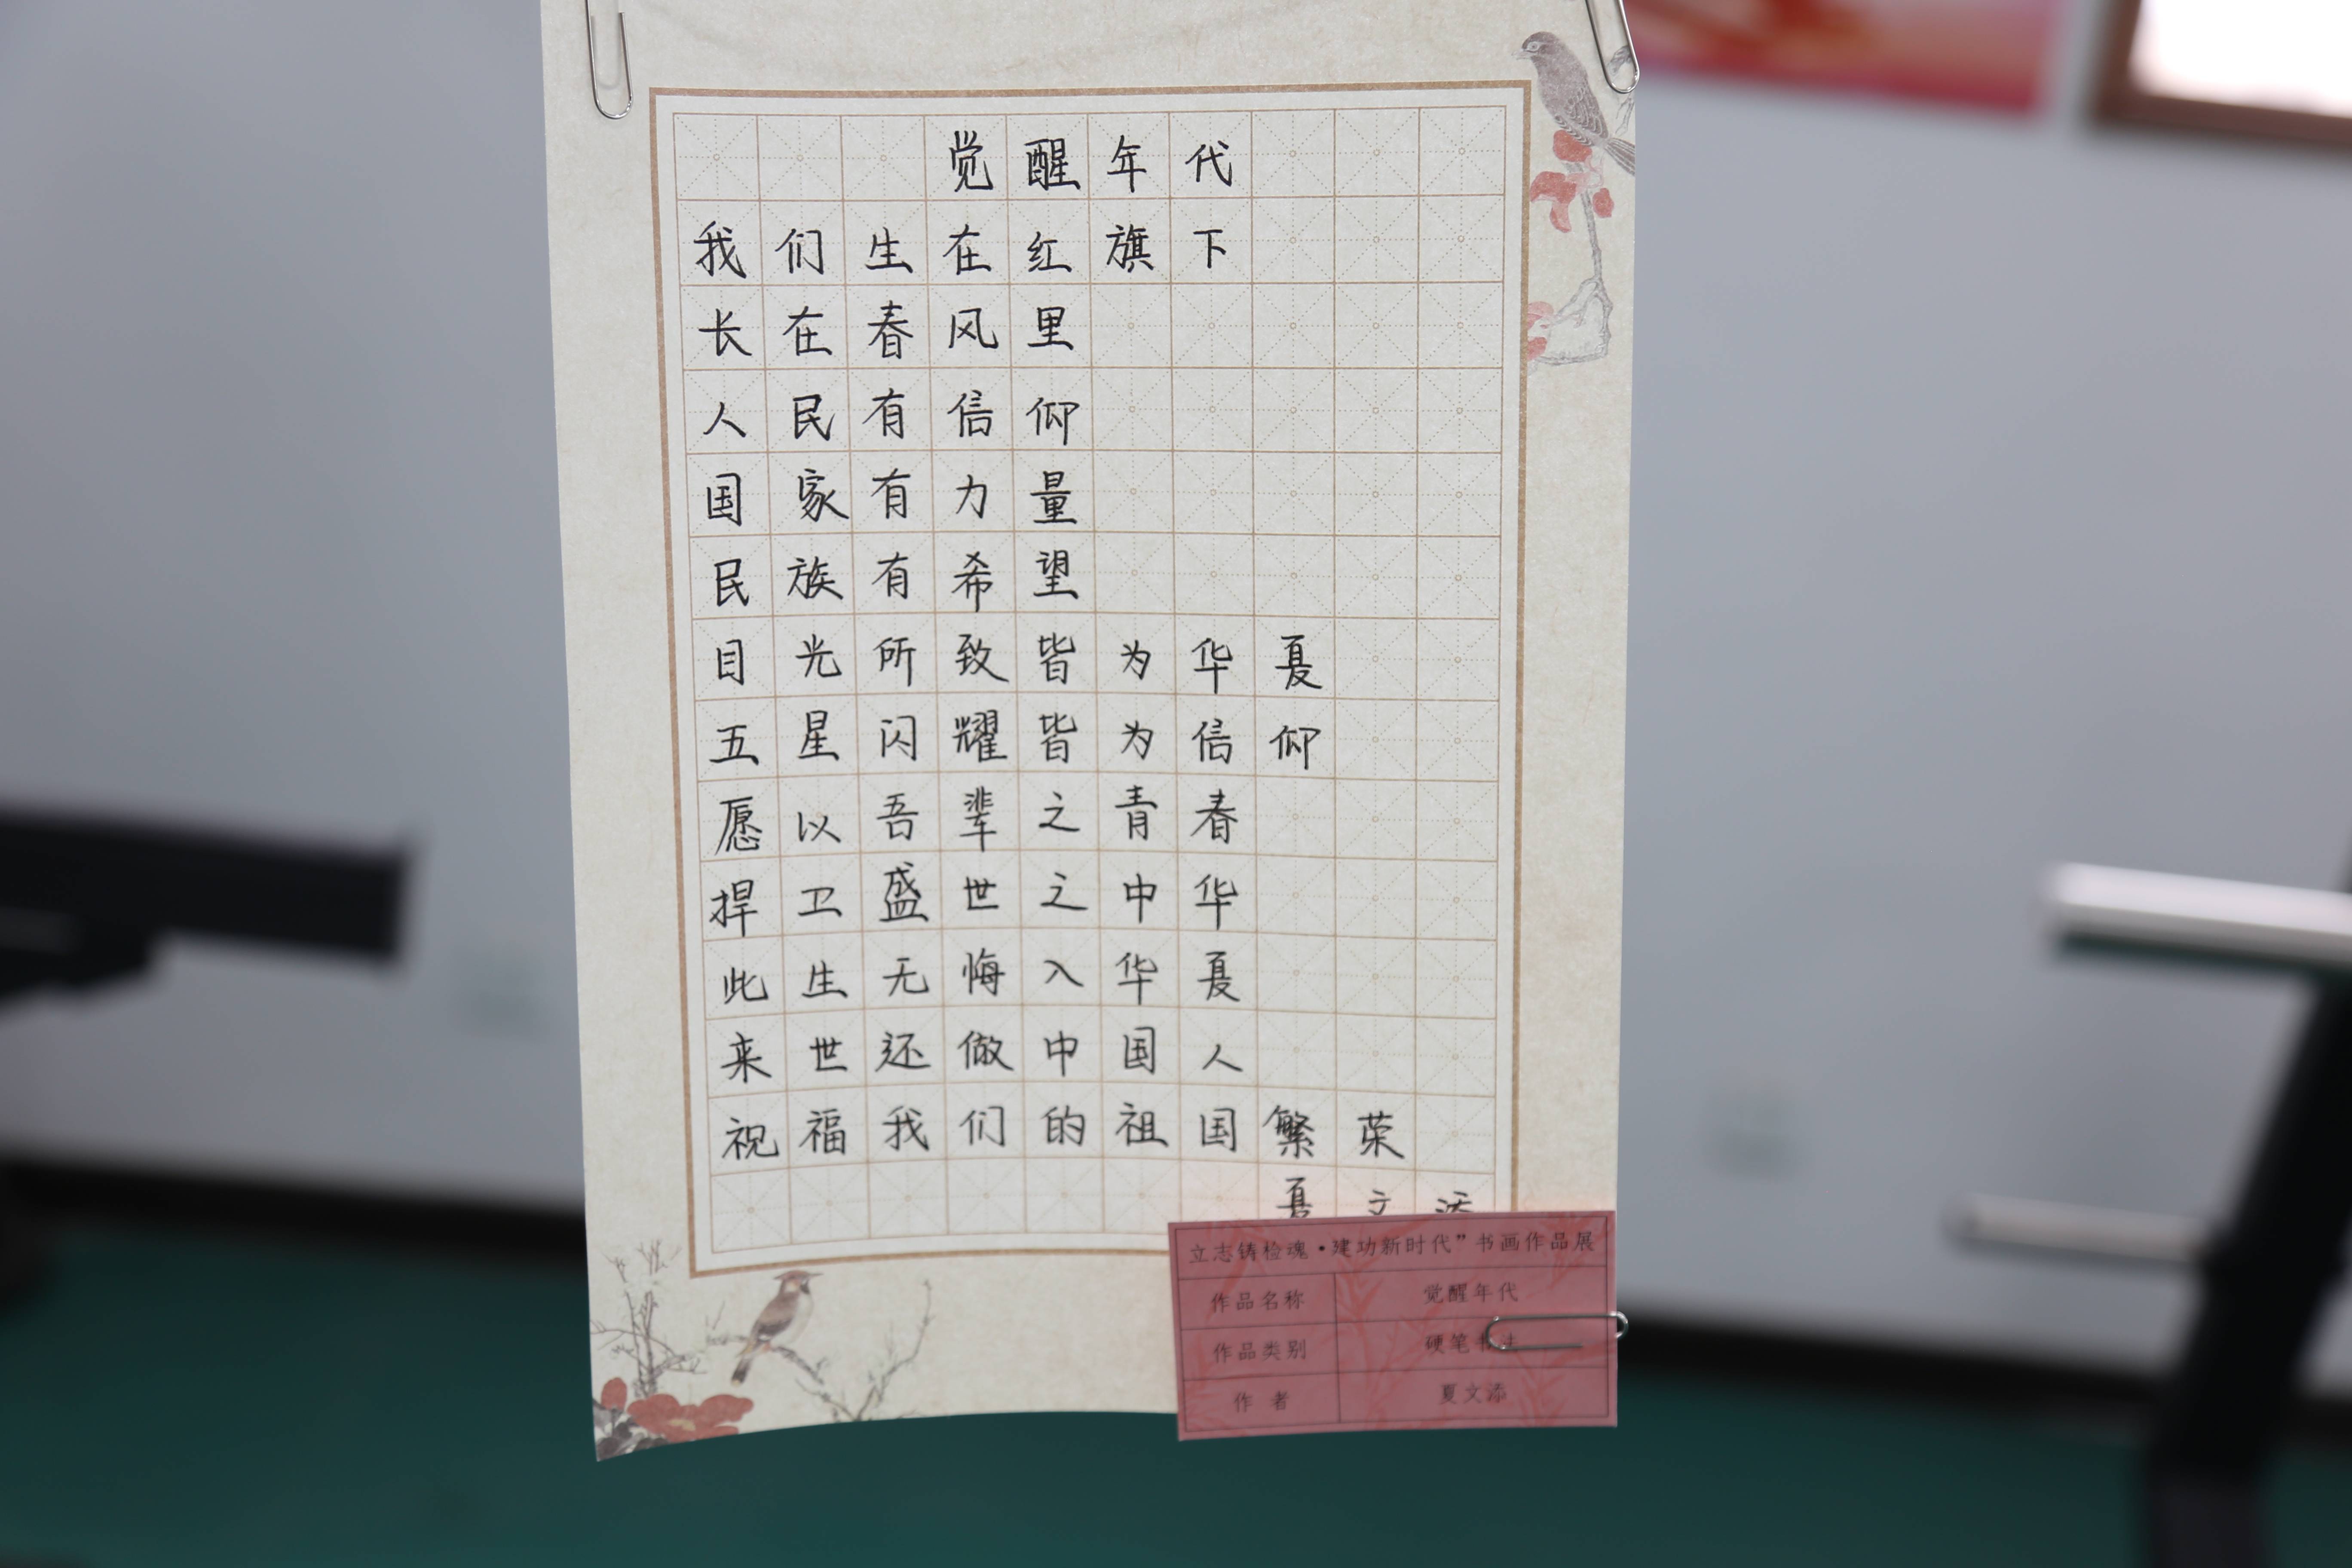 觉醒年代
我们生在红旗下
长在春风里
人民有信仰
国家有力量
民族有希望
目光所致皆为华夏
五星闪耀皆为信仰
愿以吾辈之青春
捍卫盛世之中华
此生无悔入华夏
来世还做中国人
祝福我们的祖国繁荣
夏文添
立志铸检魂·建功新时代”书画作品展
作品名称 觉醒年代
作品类别 硬笔书法
作者 夏文添